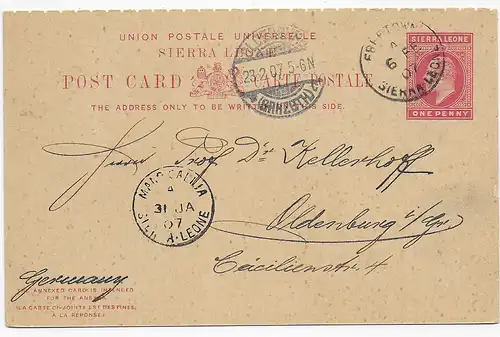 UNION POSTALE UNIVERSELLE
SIERRA LEONE
POST CARD CARTE POSTALE
THE ADDRESS ONLY TO BE WRITTEN THIS SIDE.
23.2.07.5-6N
FREETOWN
A
6 FE
07
SIERRA LEONE
SIERRA LEONE
ONE PENNY
Herrn Prof Dr Kellerhoff
MANO SALIJA
A
31 JA
07
SIERRA-LEONE
Oldenburg i/Gr.
Cäcilienstr. 4
Germany
THE ANNEXED CARD IS INTENDED
FOR THE ANSWER.
(LA CARTE CI-JOINTE EST DESTINÉE
À LA RÉPONSE.)